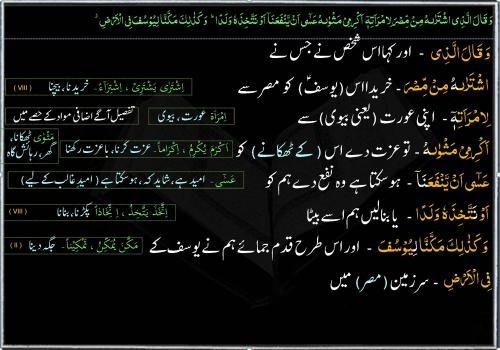 وَقَالَ الَّذِی اشْتَرٰىهُ مِنْ مِّصْرَ لِامْرَاَتِهٖۤ اَكْرِمِیْ مَثْوٰىهُ عَسٰۤى اَنْ یَّنْفَعَنَاۤ اَوْ نَتَّخِذَهٗ وَلَدًا ؕ وَكَذٰلِكَ مَكَّنَّا لِیُوْسُفَ فِی الْاَرْضِ ؗ
وَ قَالَ الَّذِی - اور کہا اس شخص نے جس نے
اشْتَرٰىهُ مِنْ مِّصْرَ - خریدا اس (یوسفؑ) کو مصر سے اِشْتَرٰی یَشْتَرِیْ ، اِشْتِرَاءً - خریدنا، بیچنا (VIII)
لِامْرَاَتِهٖۤ - اپنی عورت (یعنی بیوی) سے اِمْرَاَة عورت، بیوی تفصیل آگے اضافی مواد کے حصے میں
اَكْرِمِیْ مَثْوٰىهُ - تو عزت دے اس (کے ٹھکانے) کو اَكْرَمَ یُكْرِمُ ، اِكْرَاماً - عزت کرنا، باعزت رکھنا مَثْوٰی ٹھکانا، گھر، رہائش گاہ
عَسٰۤى اَنْ یَّنْفَعَنَاۤ - ہوسکتا ہے وہ نفع دے ہم کو عَسٰی - امید ہے، شاید کہ، ہوسکتا ہے (امیدِ غالب کے لیے)
اَوْ نَتَّخِذَهٗ وَلَدًا - یا بنا لیں ہم اسے بیٹا اِتَّخَذَ یَتَّخِذُ ، اِتِّخَاذًا - پکڑنا، بنانا (VIII)
وَكَذٰلِكَ مَكَّنَّا لِیُوْسُفَ - اور اس طرح قدم جمائے ہم نے یوسف کے مَكَّنَ یُمَكِّنُ ، تَمْكِیْناً - جگہ دینا (II)
فِی الْاَرْضِ - سرزمین (مصر) میں